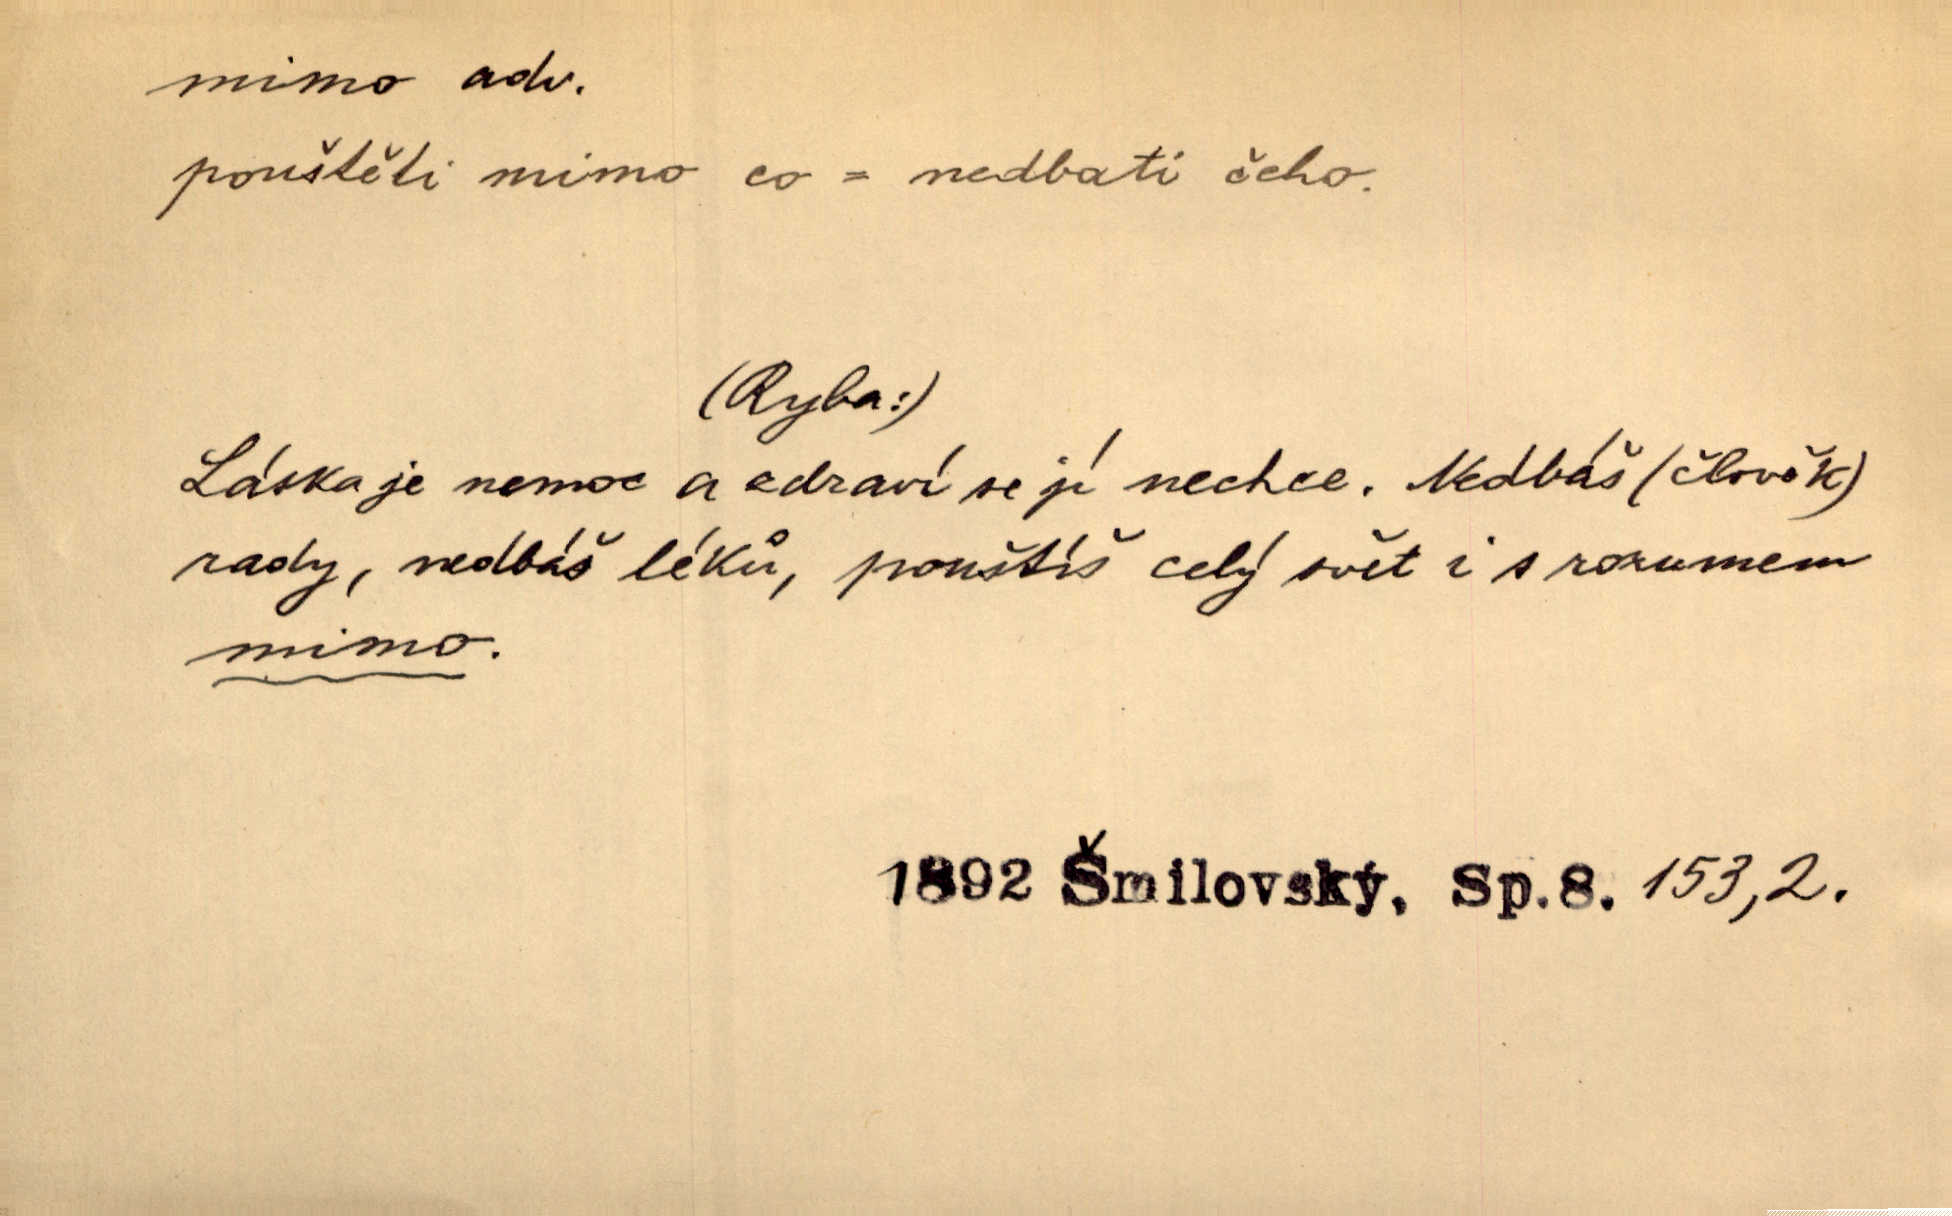 mimo adv.
pouštěti mimo co = nedbati čeho.
(Ryba:)
Láska je nemoc a zdraví se jí nechce. Nedbáš (člověk)
rady, nedbáš léků, pouštíš celý svět i s rozumem
mimo.
1892 Šmilovský, Sp.8. 153,2.